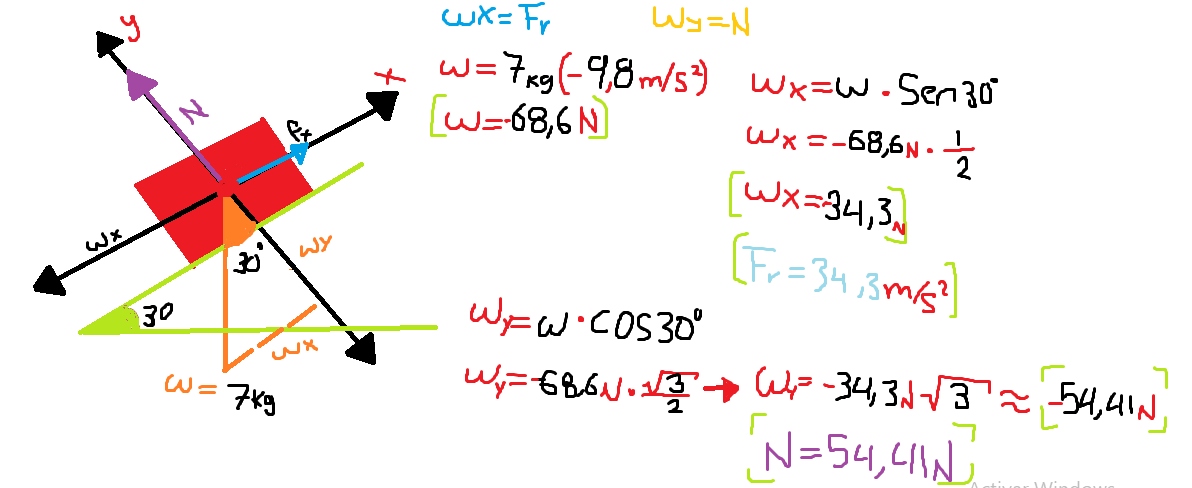 y
x
N
Fx
wx
wy
30°
30
wx
w = 7kg
wx = Fr
Wy = N
w = 7kg (-9,8 m/s²)
[w = -68,6 N]
wx = w · Sen30°
wx = -68,6N · 1/2
[wx = -34,3N]
[Fr = 34,3 m/s²]
wy = w · cos30°
wy = -68,6N · √3/2 → wy = -34,3N √3 ≈ [-54,41N]
[N = 54,41N]